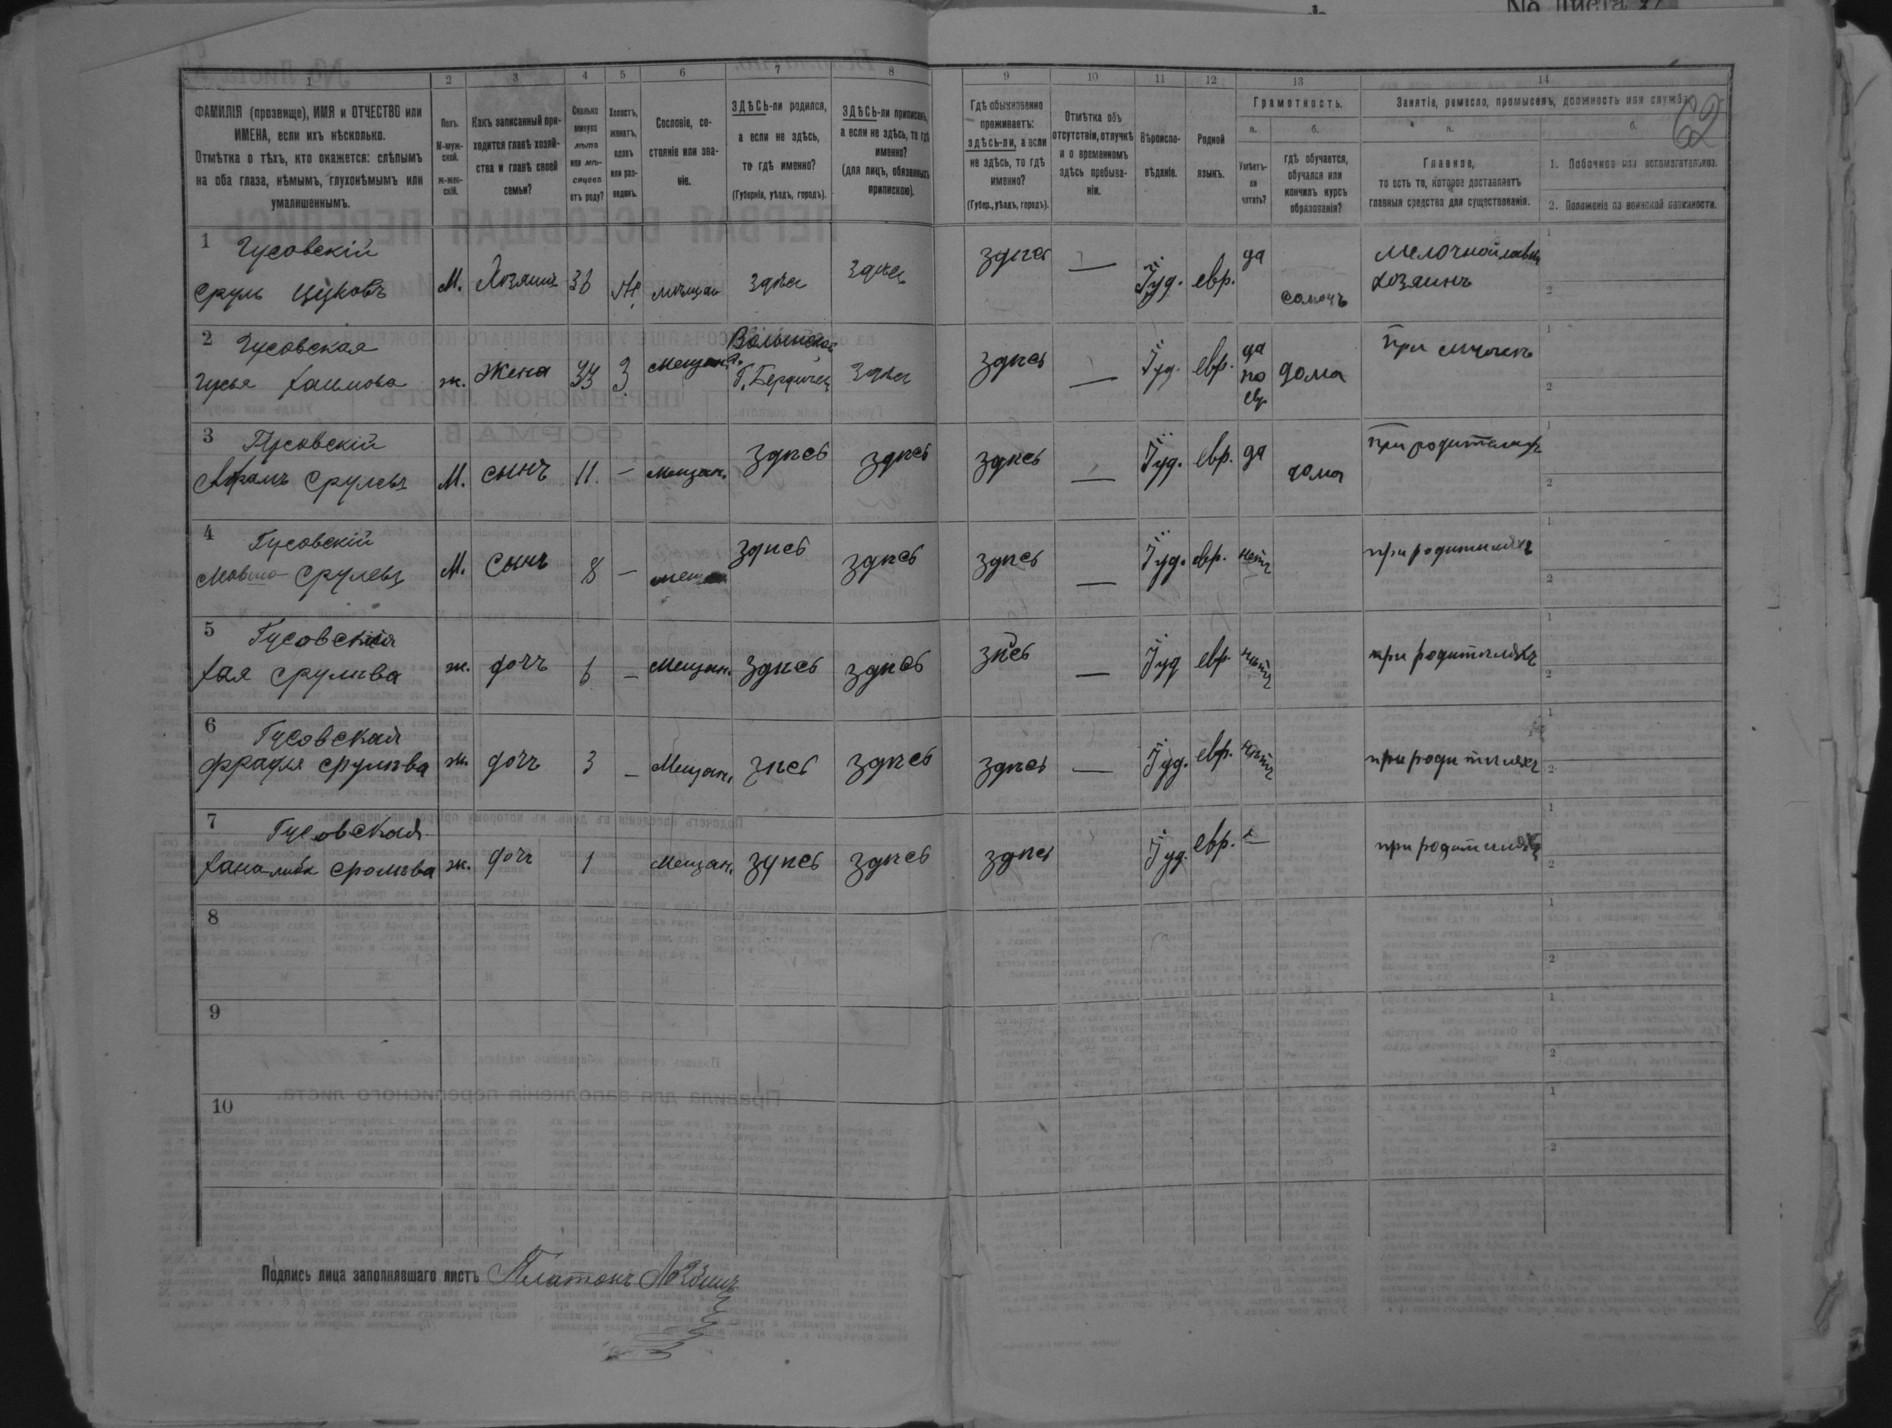 No Листа
1 2 3 4 5 6 7 8 9 10 11 12 13 14
ФАМИЛІЯ (прозвище), ИМЯ и ОТЧЕСТВО или ИМЕНА, если ихъ нѣсколько.
Отмѣтка о тѣхъ, кто окажется: слѣпымъ на оба глаза, нѣмымъ, глухонѣмымъ или умалишеннымъ.
Полъ.
М-мужской.
ж-женскій.
Какъ записанный приходится главѣ хозяйства и главѣ своей семьи?
Сколько минуло лѣтъ или мѣсяцевъ отъ роду?
Холостъ, женатъ, вдовъ или разведенъ.
Сословіе, состояніе или званіе.
ЗДѢСЬ-ли родился, а если не здѣсь, то гдѣ именно?
(Губернія, уѣздъ, городъ).
ЗДѢСЬ-ли приписанъ, а если не здѣсь, то гдѣ именно?
(для лицъ, обязанныхъ припискою).
Гдѣ обыкновенно проживаетъ: здѣсь-ли, а если не здѣсь, то гдѣ именно?
(Губер., уѣздъ, городъ).
Отмѣтка объ отсутствіи, отлучкѣ и о временномъ здѣсь пребываніи.
Вѣроисповѣданіе.
Родной языкъ.
Грамотность.
а.
Умѣетъ-ли читать?
б.
гдѣ обучается, обучался или кончилъ курсъ образованія?
Занятіе, ремесло, промыселъ, должность или служба.
62
а.
Главное,
то есть то, которое доставляетъ главныя средства для существованія.
б.
1. Побочное или вспомогательное.
2. Положеніе по воинской повинности.
1 Гусовскій
Сруль Ицковъ М. Хозяинъ мѣщан здѣсь здѣсь здѣсь — Іуд. евр. да хозяинъ
1
2
2 Гусовская
Хаимова ж. жена 33 З мещан. Волынской
Г. Бердичев здѣсь здѣсь — Іуд. евр. да
по
евр дома
1
2
3 Гусовскій
Абрамъ Срулевъ М. сынъ 11. — мещан. здѣсь здѣсь здѣсь — Іуд. евр. да дома При родителяхъ
1
2
4 Гусовскій
Мовша Срулевъ М. сынъ 8 — мещан здѣсь здѣсь здѣсь — Іуд. евр. нетъ при родителяхъ
1
2
5 Гусовская
Хая Срулева ж. дочь 6 — Мещан. здѣсь здѣсь здѣсь — Іуд евр. нѣтъ при родителяхъ
1
2
6 Гусовская
Фрадля Срулева ж. дочь 3 — Мещан. здѣсь здѣсь здѣсь — Іуд. евр. нѣтъ при родителяхъ
1
2
7 Гусовская
Хана Либа Срулева ж. дочь 1 Мещан. здѣсь здѣсь здѣсь Іуд. евр. — при родителяхъ
1
2
8
1
2
9
1
2
10
1
2
Подпись лица заполнявшаго листъ Платонъ